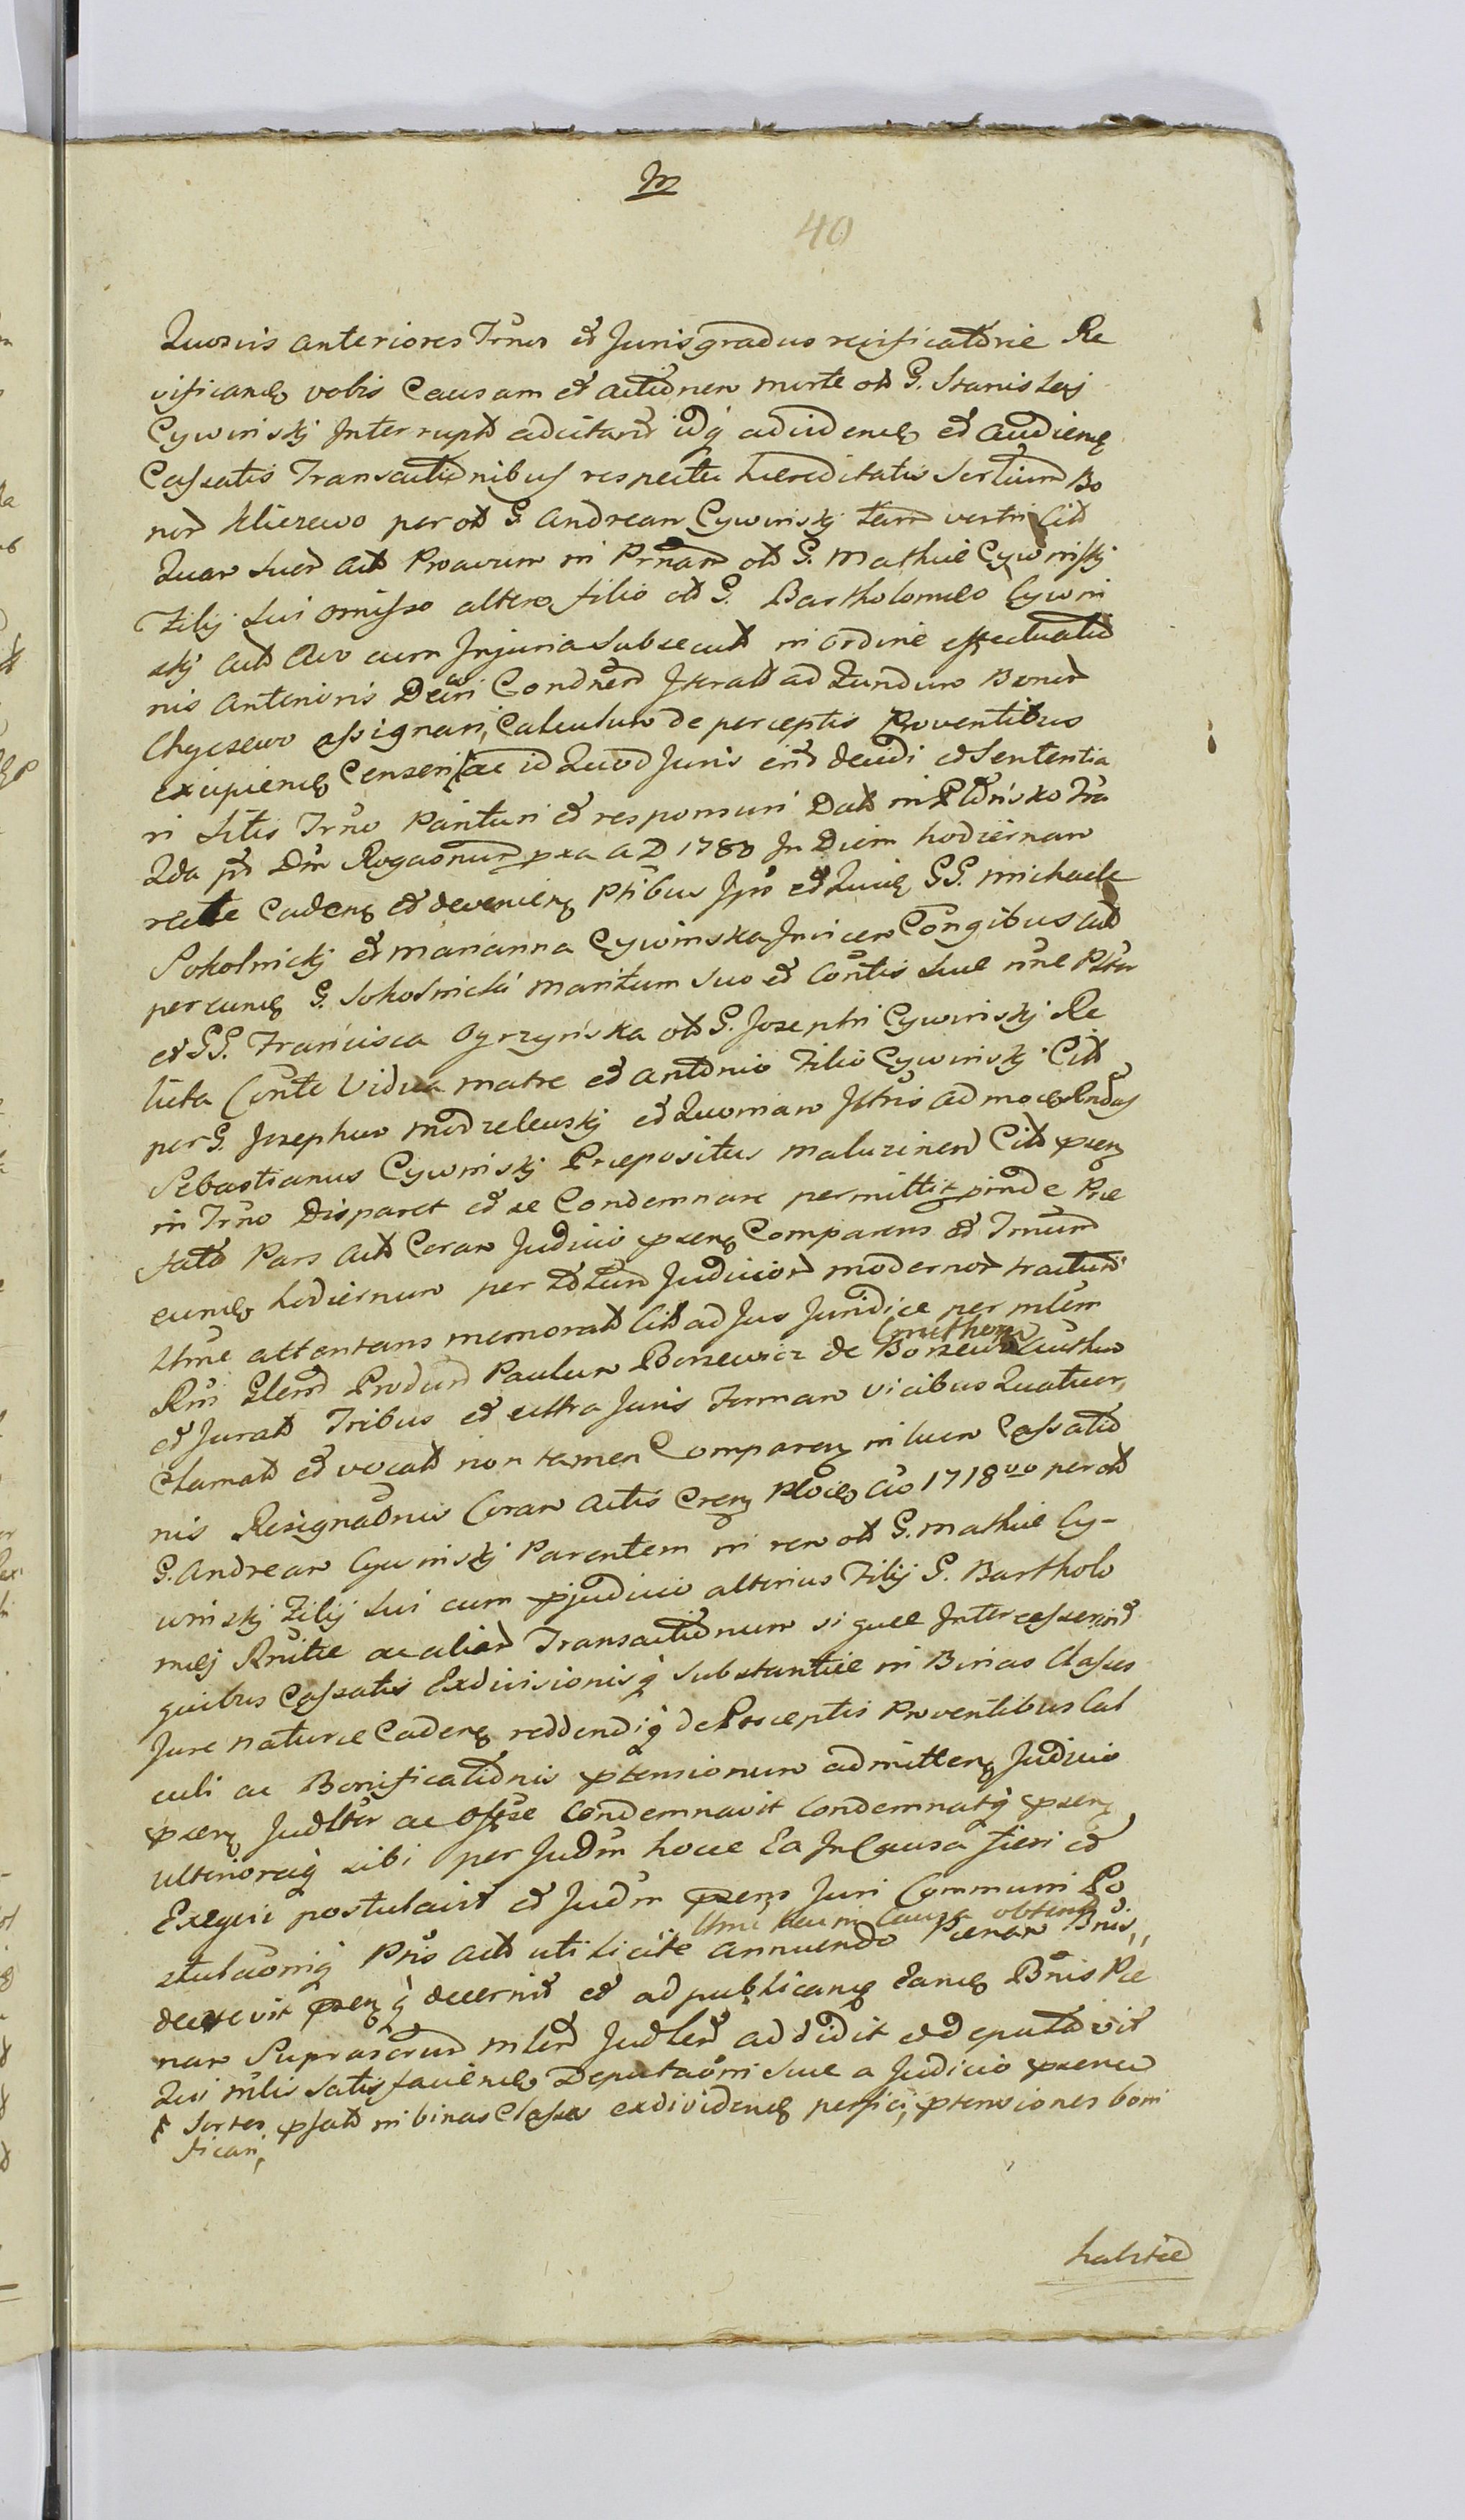 M
40
Quosvis anteriores Trnos et Jurisgradus reificatorie Re
vificand vobis Causam et actionem morte ol G. Stanislai
Cywinskj Interrupt adcitand idq ad vidend et audiend
Cassatis Transactionibus respectu haereditatis Sortium Bo
nor Kliczewo per ol G Andream Cywinskj tam vestri Cit
quam suor act Proavum in ol G. Mathiae Cywinskj
Filij sui omisso altero filio ol G. Bartholomeo Cywin
skj act Avo cum Injuria subsecut in ordine effectuatio
nis anterioris Decri Condnem Iterato ad fundum Bonor
Chyczewo assignari, Calculum de perceptis Proventibus
excipiend Censeri ac id Quod Juris erit decidi et Sententia
ri Litis Trno parituri et responsuri Dat in Płonsko Fria
Qda pt Dm Rogaonum pxa A D 1780 In Diem hodiernam
recte caden et devenien Ptibus Ipis et Quid GG. Michaele
Sokolnickj et Marianna Cywinska Invicem Congibus act
per eund G. Sokolnicki Maritum suo et Contis suae nne Pttur
et GG. Francisca Ogrzynska ol G. Josephi Cywinskj Re
licta Conte Vidua matre et Antonio Filio Cywinskj Cit
per G. Josephum Modzelewskj et Quoniam Adms Rndus
Sebastianus Cywinskj Praepositus Maluzinen Cit pxen
in Trno Disparet et se Condemnare permittit pinde Prae
fato Pars act Coram Judicio pxen Comparens et Trnum
eund hodiernum per Totum Judicior modernor tractum
Ume attentans memorat Cit ad Jus Juridice per mlem
Rni Glem Produm Paulum Borzewicz de Borzewo Cmethonem
et Jurat Tribus et ultra Juris Formam vicibus Quatuor,
Clamat et vocat non tamen Comparen in luen Cassatio
nis Resignaonis Coram actis Cren Ploce Ao 1718vo per ol
G. Andream Cywinskj Parentem in rem ol G. Mathiae Cy-
winskj Filij sui cum pjudicio alterius Filij G. Bartholo
maej ac aliar Transactionum si quae Intercesserint
quibus Cassatis Exdivisionisq substantiae in Binas Classes
Jure naturae Caden reddendiq de Perceptis Proventibus Cal
culi ac Bonificationis ptensionum admitten Judicio
pxen Judltr ac Offse Condemnavit Condemnatq pxen
ulterioreq sibi per Judm hocce Ea In Causa fieri et
Exequi postulavit et Judm pxens Juri Communi Po
stulaoniq Ptis act uti licite annuendo Ume huic in Causa obten Paenam Bnis,,
decrevit pxen q decernit et ad publicand Eand Bnis Pae
nam Suprascrum mlem Judlem addidit et deputavit
Qui mlis satisfaciend Deputaoni suae a Judicio pxen
Sortes psat in binas Classes exdividend perfici, ptensiones boni
ficari,
habitae